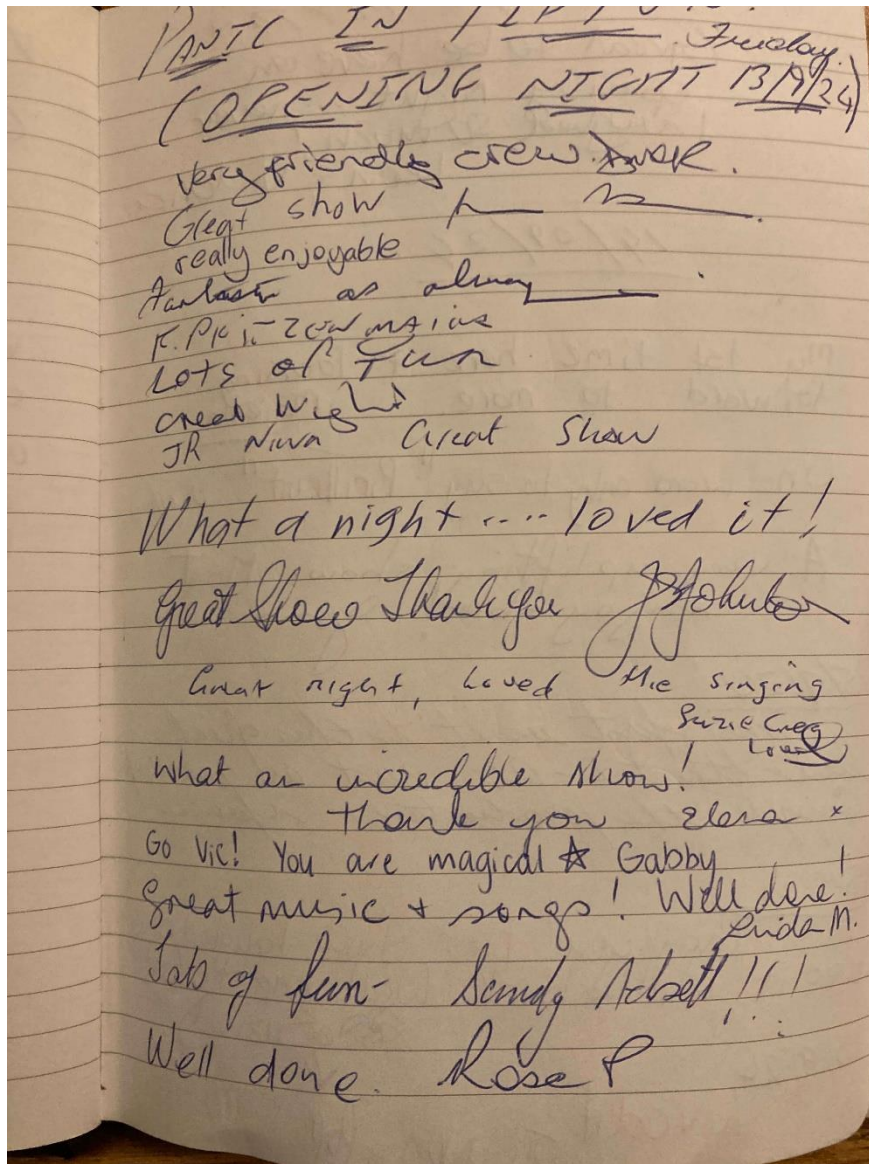 PANIC IN
Friday
(OPENING NIGHT 13/9/24)
very friendly crew.
Great show
really enjoyable
Fantastic as always
Lots of Fun
Great Night
JR Great Show
What a night .... loved it!
Great Show Thank you
Great night, Loved the singing
Suzie
What an incredible show!
Thank you Elena x
Go Vic! You are magical ☆ Gabby
Great music + songs! Well done!
Linda M.
Lots of fun- Sandy !!!
Well done. Rose P